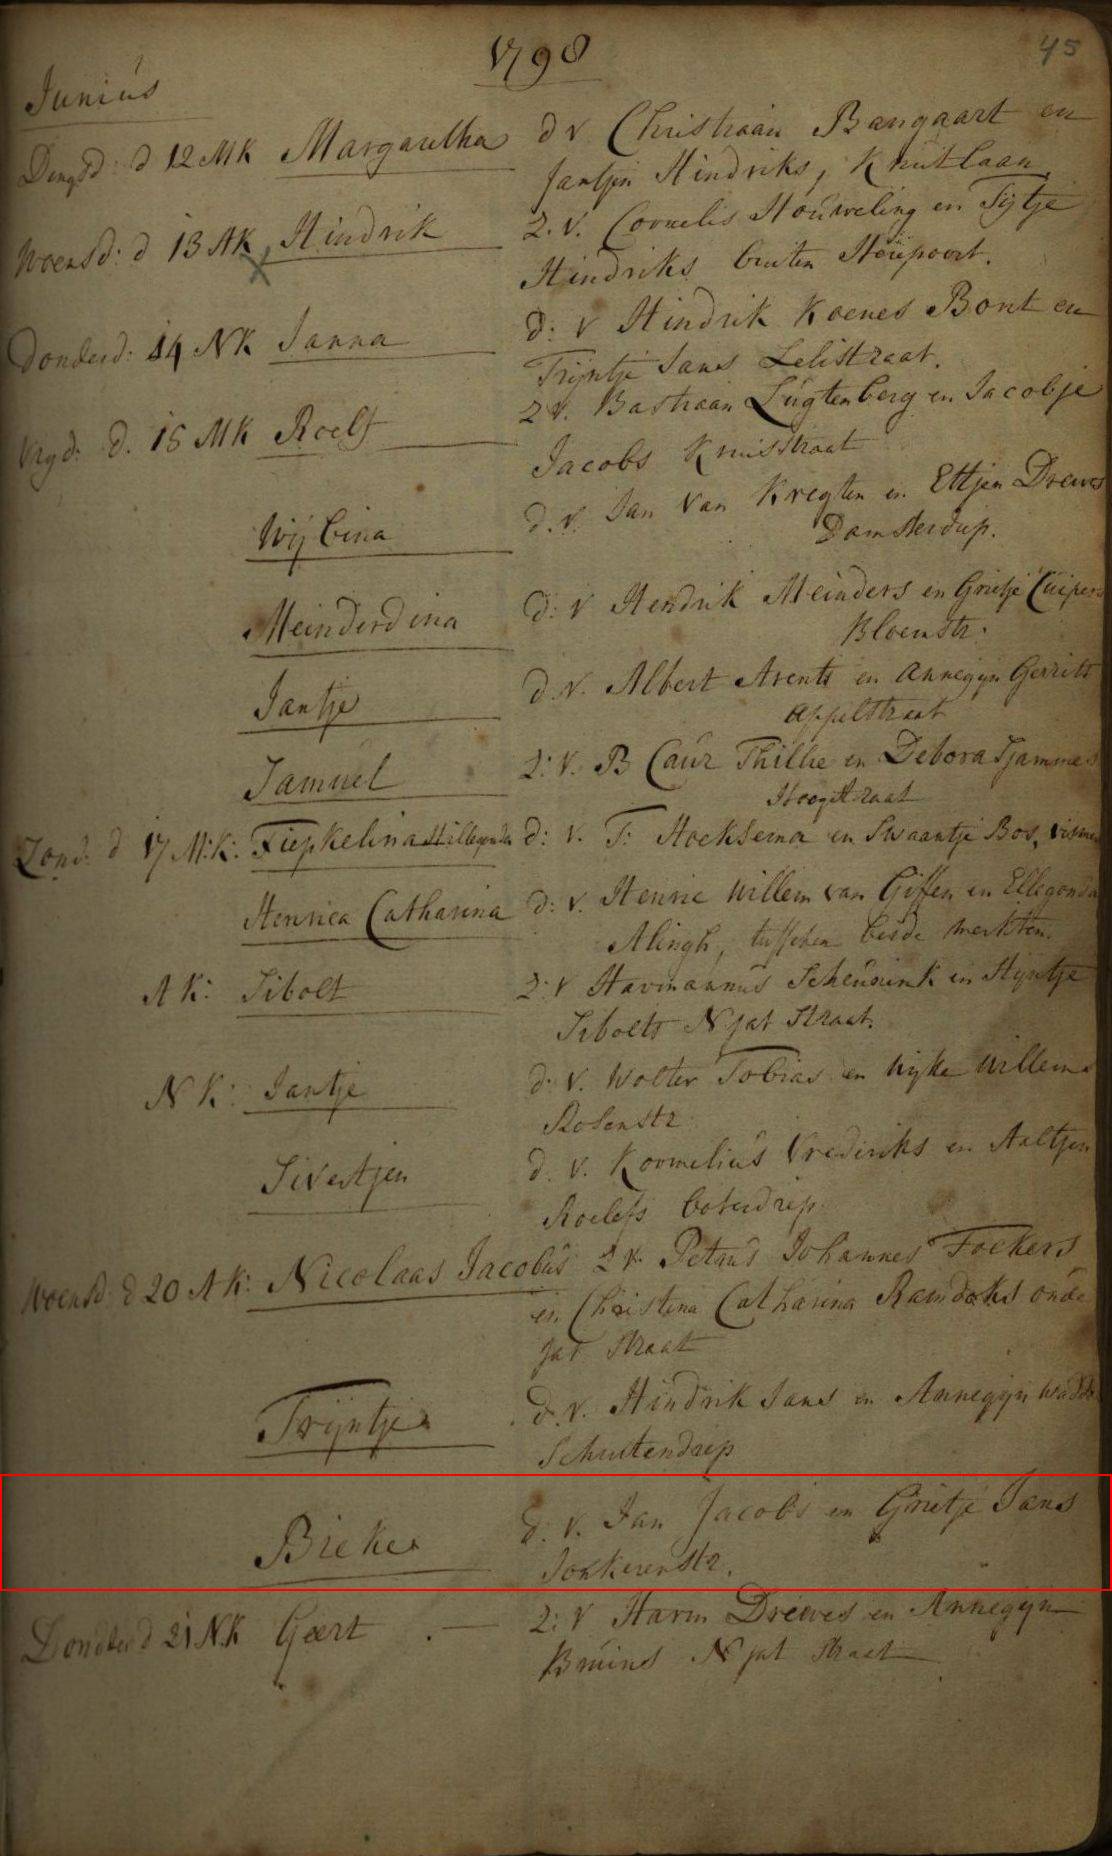 1798
45
Junius
Dingsd: d 12 MK Margaretha d v Christiaan Bangaart en
Jantjen Hindriks, Kruitlaan
Woensd: d 13 AK Hindrik Z. v. Cornelis Houweling en Tijtje
Hindriks buiten Steupoort.
Donderd: 14 NK Janna d: v Hindrik Koenes Bont en
Trijntje Jans Lelistraat.
Vryd: d. 15 MK Roelf Z v. Bastiaan Lugtenberg en Jacobje
Jacobs Kruisstraat
Wijbina d. v. Jan van Kregten en Ettjen Drewes
Damsterdiep.
Meinderdina d: v Hendrik Meinders en Grietje Cuipers
Bloemstr.
Jantje d. v. Albert Arents en Annegijn Gerrits
Appelstraat
Samuel Z: v. B Caur Thillie en Debora Tjammes
Hoogstraat
Zond: d 17 M:K: Fiepkelina Hillegonda d: v. T: Hoeksema en Swaantje Bos,
Henrica Catharina d: v. Henric Willem van Giffen en Ellegonda
Alingh, tusschen beide merkten.
A K: Sibolt Z: v Harmannus Scheusink en Stijntje
Sibolts N Jat Straat.
N K: Jantje d: v. Wolter Tobias en Wijke Willems
Rosenstr
Sivertjen d. v. Kornelius Vrederiks en Aaltjen
Roelefs boterdiep
Woensd: d 20 A K: Nicolaas Jacobus Z v. Petrus Johannes Fockers
en Christina Catharina Ramdohrs oude
Jat Straat
Trijntje d. v. Hindrik Jans en Annegijn
Schuitendiep
Bieke d: v. Jan Jacobs en Grietje Jans
Jonkerenstr.
Donderd 21 N.K Geert Z: v Harm Drewes en Annegijn
Bruins N Jat Straat